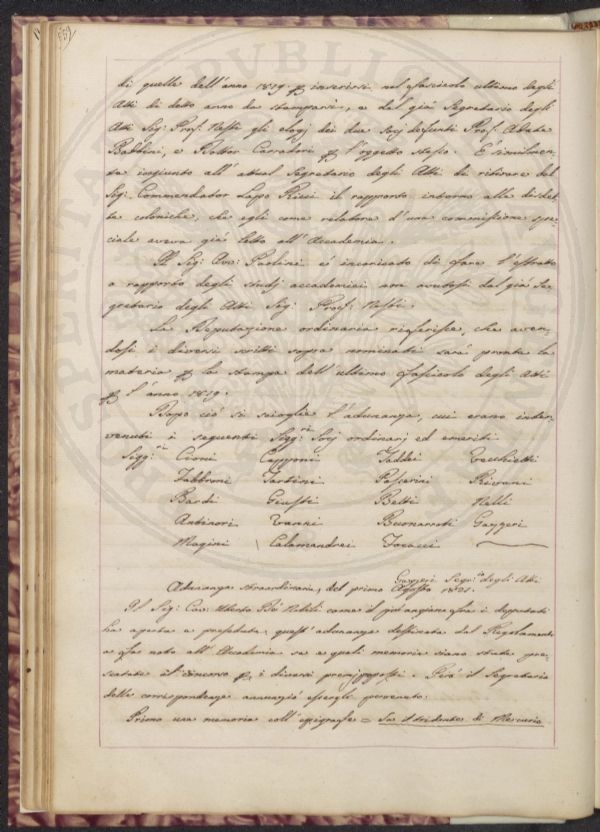 di quelle dell'anno 1819 p inserirsi nel fascicolo ultimo degli
Atti di detto anno da stamparsi, e dal già Segretario degli
Atti Sig: Prof: Nesti gli elogj dei due Socj defunti Prof. Abate
Babbini, e Dottor Carradori p l'oggetto stesso. È similmen-
te ingiunto all'attual Segretario degli Atti di ritirare dal
Sig: Commendator Lapo Ricci il rapporto intorno alle disdet
te coloniche, che egli come relatore d'una commissione spe-
ciale aveva già letto all'Accademia.
Il Sig: Cav: Paolini è incaricato di fare l'estratto
o rapporto degli studj accademici non avutosi dal già Se
gretario degli Atti Sig: Prof: Nesti.
La Deputazione ordinaria riferisce, che aven-
dosi i diversi scritti sopra nominati sarà pronta la
materia p la stampa dell'ultimo fascicolo degli Atti
p l'anno 1819.
Dopo ciò si scioglie l'adunanza, cui erano inter-
venuti i seguenti Sigg:ri Socj ordinarj ed emeriti
Sigg:ri Cioni Capponi Taddei Vecchietti
Fabbroni Tartini Passerini Rivani
Bardi Giusti Betti Nelli
Antinori Vanni Buonarroti Gazzeri
Magini Calamandrei Focacci
Gazzeri Segr:o degli Atti
Adunanza straordinaria, del primo Agosto 1821.
Il Sig: Cav: Uberto De' Nobili come il più anziano fra i deputati
ha aperta e preseduta quest'adunanza destinata dal Regolamento
a far noto all'Accademia se e quali memorie siano state pre-
sentate al concorso p i diversi premj proposti. Però il Segretario
delle corrispondenze annunziò essergli pervenuto:
Primo una memoria coll'epigrafe = Se il tridente di Mercurio